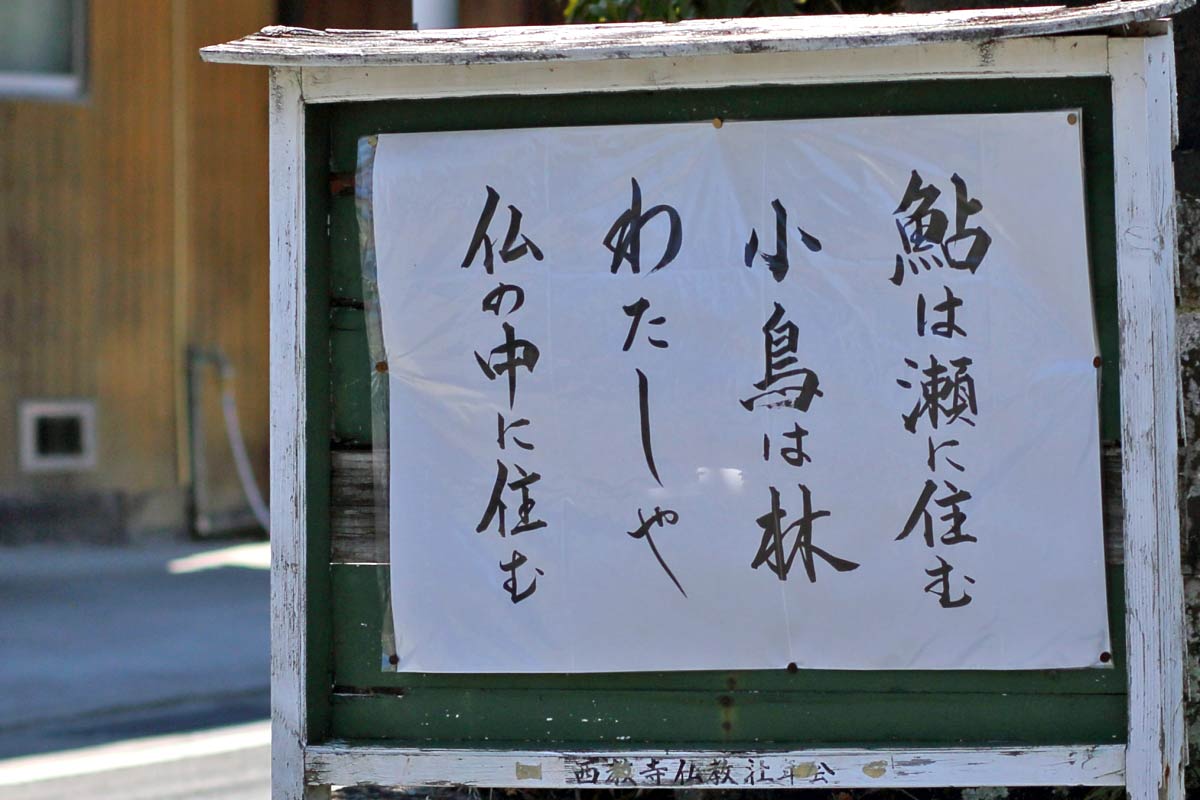 鮎は瀬に住む
小鳥は林
わたしや
仏の中に住む
西教寺仏教壮年会